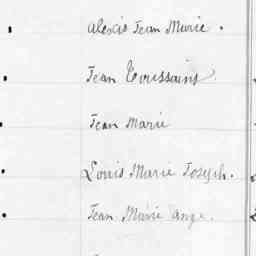 Alexis Jean Marie.
Jean Toussaint
Jean Marie
Louis Marie Joseph.
Jean Marie Ange.